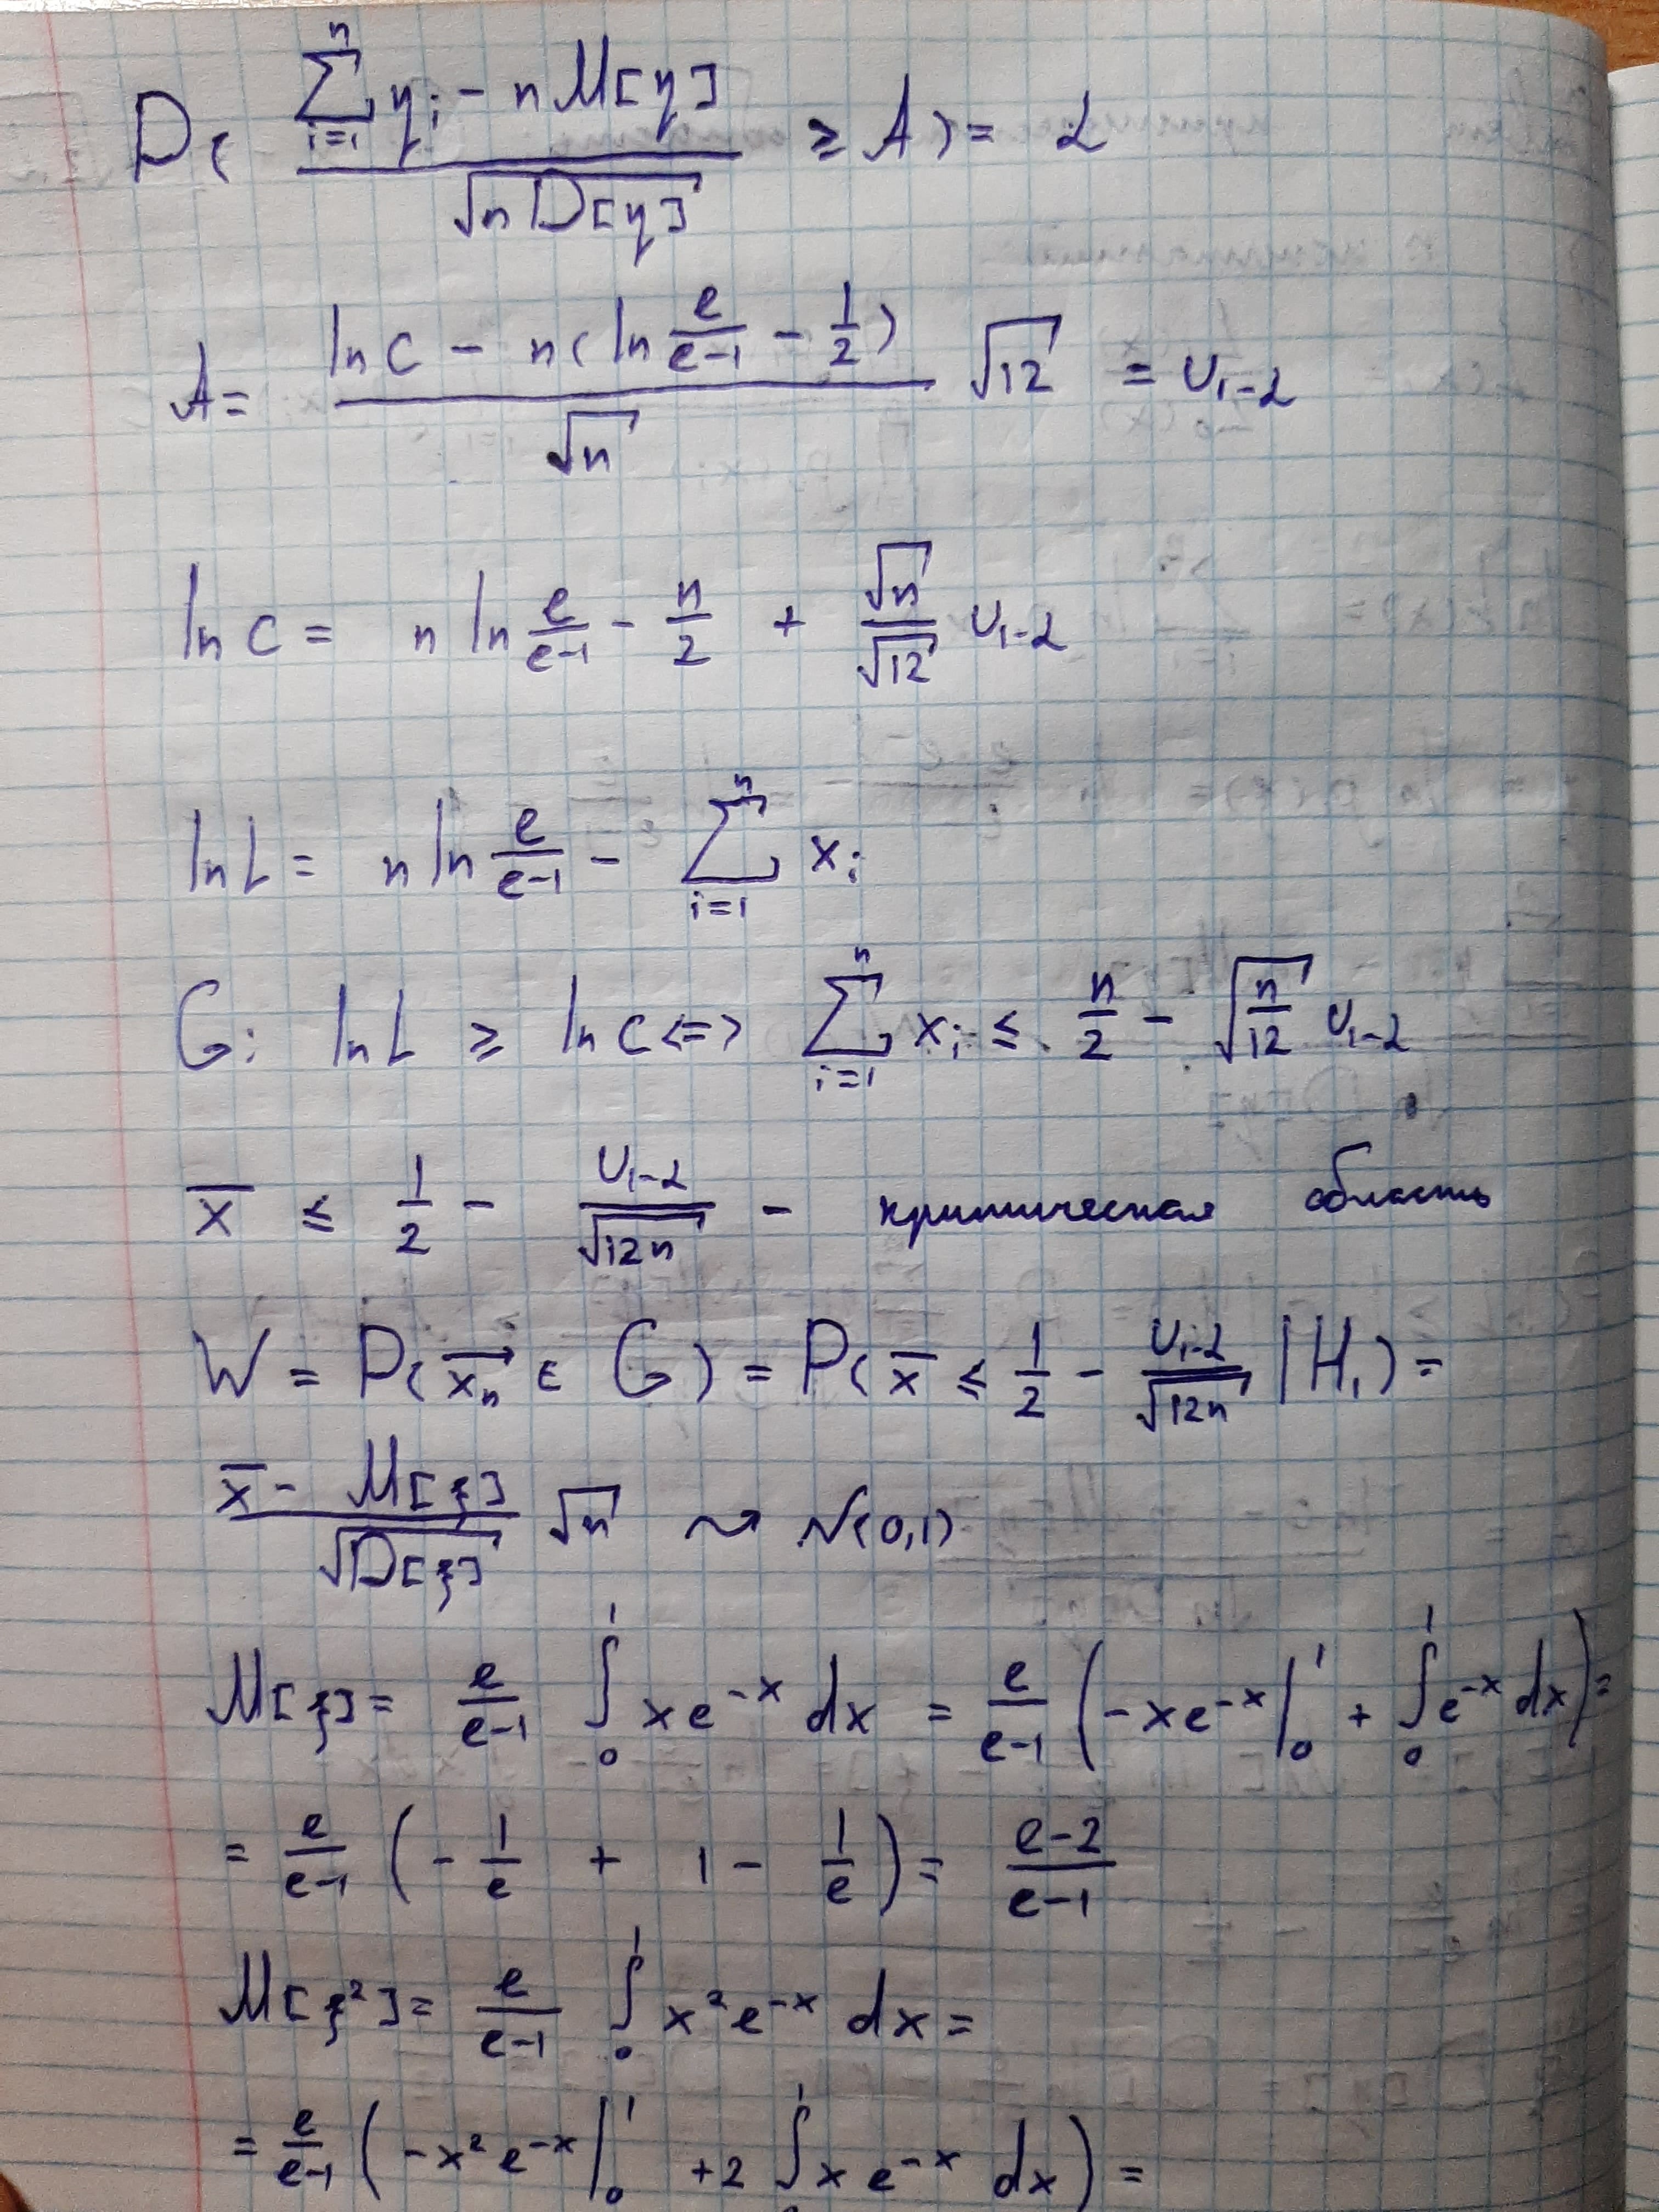 P( (∑_{i=1}^{n} η_i - n M[η]) / √(n D[η]) ≥ A ) = α
A = (ln c - n(ln e/(e-1) - 1/2)) / √n √12 = u_{1-α}
ln c = n ln e/(e-1) - n/2 + √n/√12 u_{1-α}
ln L = n ln e/(e-1) - ∑_{i=1}^{n} x_i
G: ln L ≥ ln c <=> ∑_{i=1}^{n} x_i ≤ n/2 - √(n/12) u_{1-α}
x̄ ≤ 1/2 - u_{1-α}/√(12n) - критическая область
W = P( x⃗_n ∈ G ) = P( x̄ ≤ 1/2 - u_{1-α}/√(12n) | H_1 ) =
(x̄ - M[ξ]) / √(D[ξ]) √n ⇝ N(0,1)
M[ξ] = e/(e-1) ∫_0^1 x e^{-x} dx = e/(e-1) ( -x e^{-x} |_0^1 + ∫_0^1 e^{-x} dx ) =
= e/(e-1) ( - 1/e + 1 - 1/e ) = (e-2)/(e-1)
M[ξ²] = e/(e-1) ∫_0^1 x² e^{-x} dx =
= e/(e-1) ( -x² e^{-x} |_0^1 + 2 ∫_0^1 x e^{-x} dx ) =